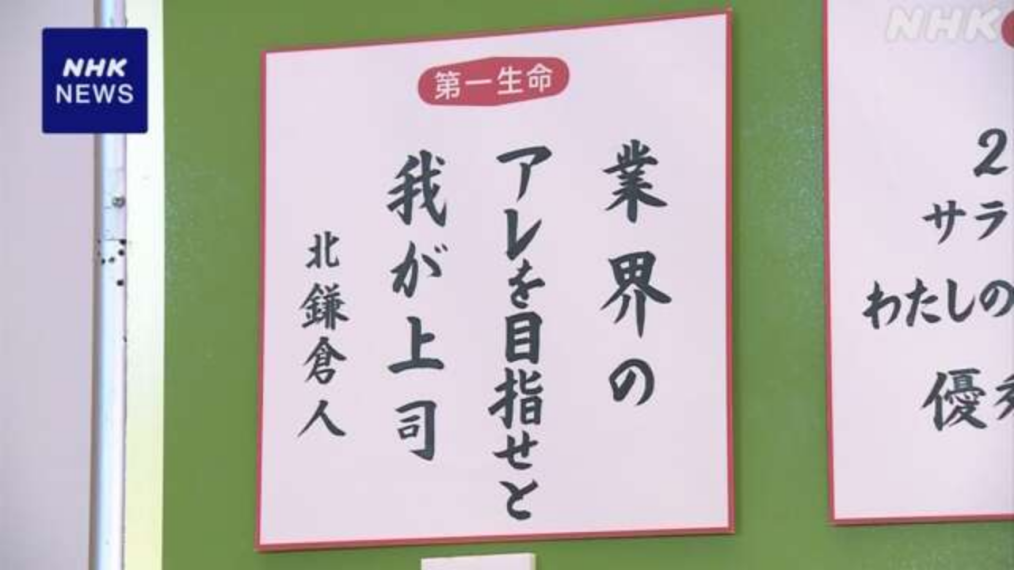 NHK
NEWS
NHK
第一生命
業界の
アレを目指せと
我が上司
北鎌倉人
2
サラ
わたしの
優